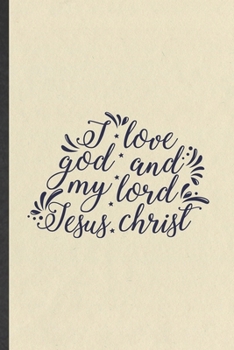 I love
god and
my lord
Jesus christ